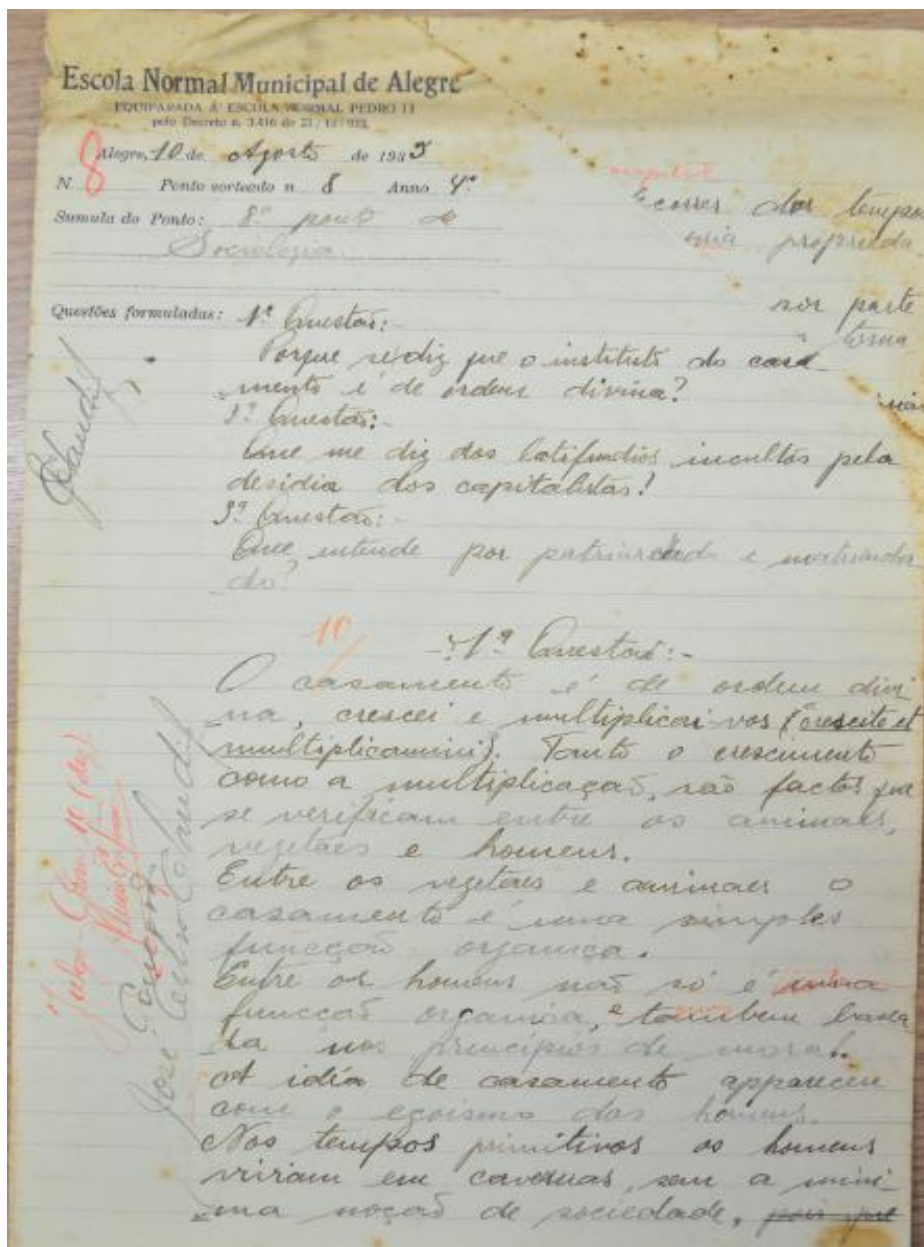 Escola Normal Municipal de Alegre
EQUIPARADA Á ESCOLA NORMAL PEDRO II
pelo Decreto n. 3.416 de 21/12/932.
Alegre, 10 de Agosto de 1933
N. 8 Ponto sorteado n 8 Anno 4º
Sumula do Ponto: 8º ponto de
Sociologia
correr dos tempos
propriedade
por parte
torna
Questões formuladas: 1ª Questão:-
Porque se diz que o instituto do casa-
mento é de ordem divina?
Questão:-
Que me diz dos latifundios incultos pela
desidia dos capitalistas?
3ª Questão:-
Que entende por patriarchado e matriarcha
do?
10/
-:1ª Questão:-
O casamento é de ordem divi
na, crescei e multiplicai-vos (crescite et
multiplicamini). Tanto o crescimento
como a multiplicação, são factos que
se verificam entre os animaes,
vegetaes e homens.
Entre os vegetaes e animaes o
casamento é uma simples
funcção organica.
Entre os homens não só é uma
funcção organica, e tambem basea
da nos principios de moral.
A idéia de casamento appareceu
com o egoismo dos homens.
Nos tempos primitivos os homens
viviam em cavernas, sem a mini-
ma noção de sociedade, pois que
Julgo 10 (dez)
José Celso Claudio